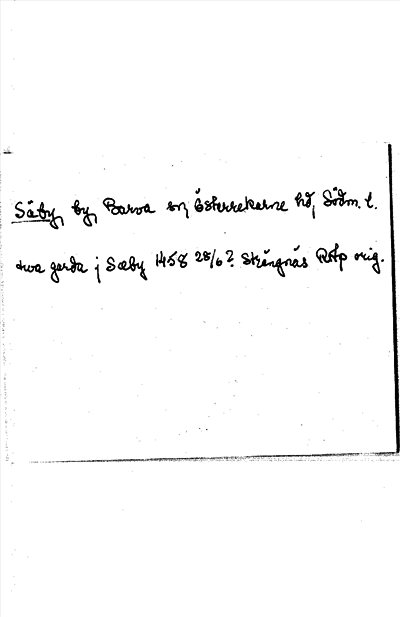 Säby, by, Barva sn, Österrekarne hd, Södm. l.
twa gerda j Sæby 1458 28/6? Strängnäs RAp orig.